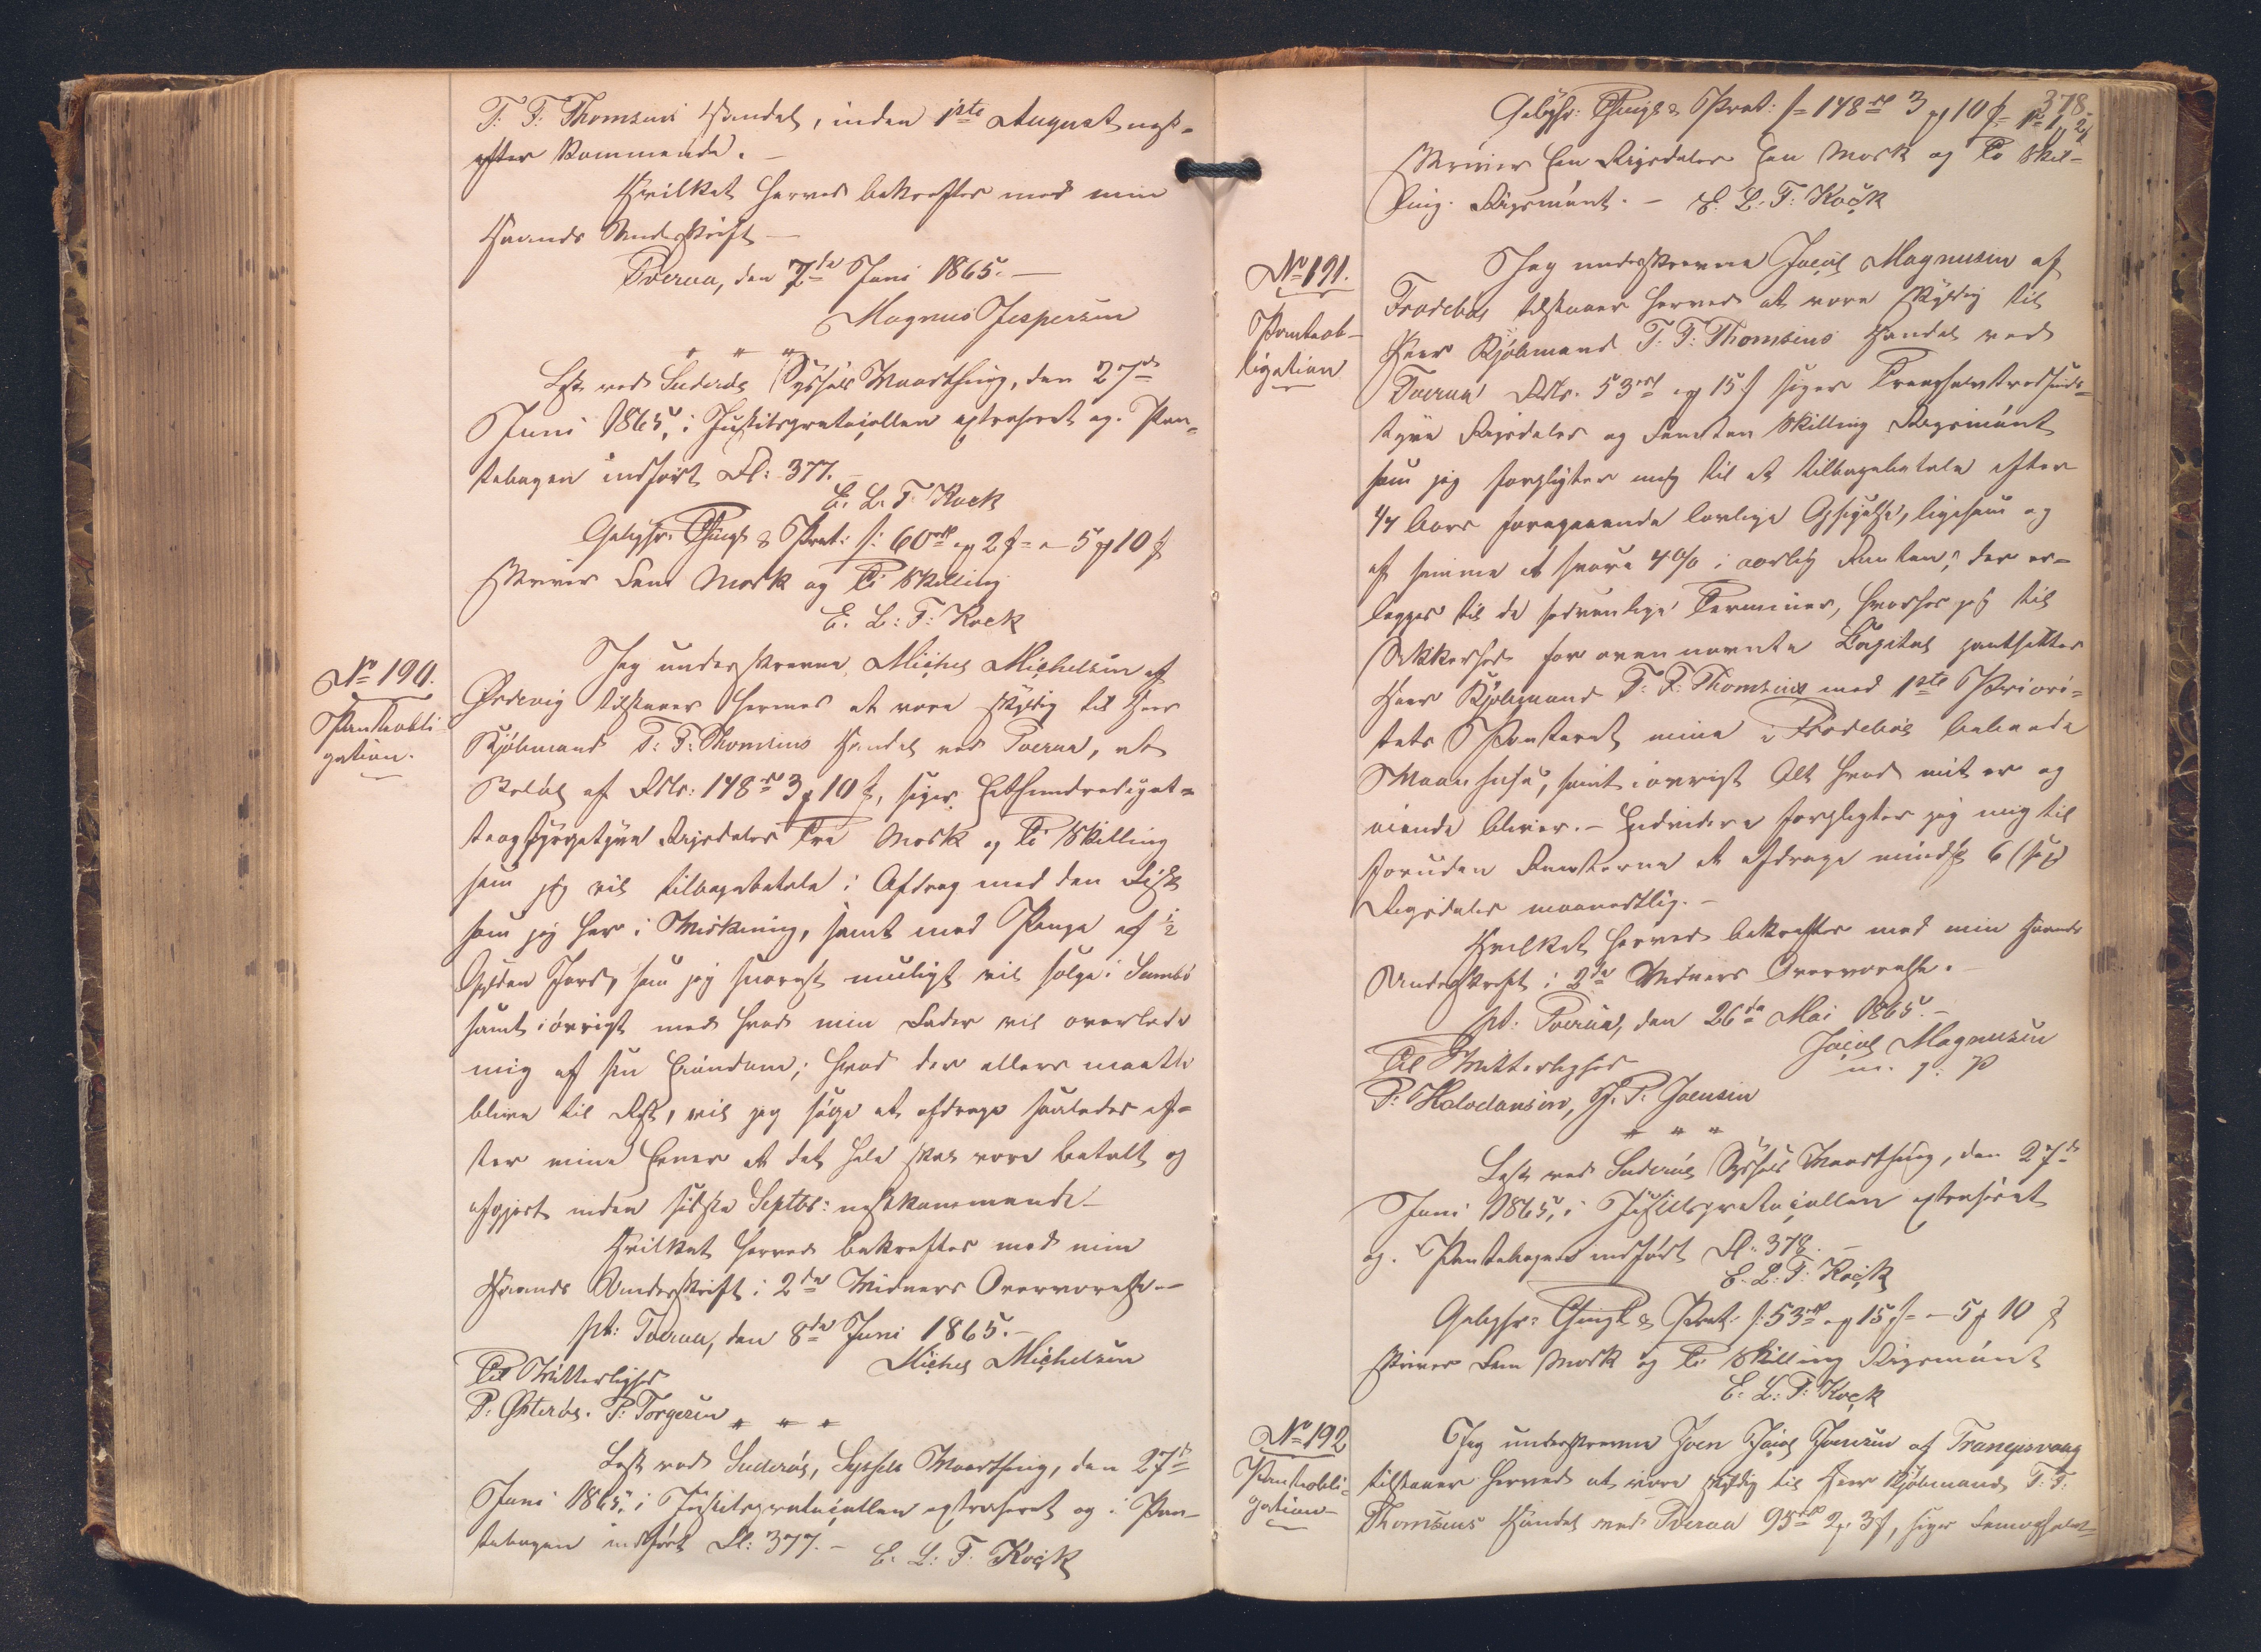 T. F. Thomsens Handel, inden 1ste August nest-
efter kommende. -
Hvilket herved bekræftes med min
Haands Underskrift -
Tveraa, den 7de Juni 1865. -
Magnus Jespersen
" " "
Læst ved Suderøe Syssels Vaarthing, den 27de
Juni 1865, i Justitsprotocollen extraheret og Pan-
tebogen indført Fl: 377. -
E. L. T. Kock
Gebyhr: Thingl. & Prot: f: 60rd og 2 ß = - 5 # 10 ß
skriver Fem Mark og Ti Skilling
E. L: T: Kock
No 190.
Panteobli
gation.
Jeg underskrevne Michel Michelsen af
Ørdevig tilstaaer hermed at være skyldig til Herr
Kjøbmand T: F: Thomsens Handel ved Tveraa, et
Beløb af Rdlr: 148rd 3 # 10 ß, siger Eethundredeogot-
teogfyrgetyve Rigsdaler Tre Mark og Ti Skilling
som jeg vil tilbagebetale i Afdrag med den Fisk
som jeg har i Virkning, samt med Penge af ½
Gylden Jord, som jeg snarest muligt vil sælge i Sumbø
samt iøvrigt med hvad min Fader vil overlade
mig af sin Eiendom; hvad der ellers maatte
blive til Rest, vil jeg søge at afdrage saaledes ef-
ter mine Evner at det hele skal være betalt og
afgjort inden sidste Septbr: nestkommende -
Hvilket herved bekræftes med min
Haands Underskrift i 2de Vidners Overværelse. -
pt: Tveraa, den 8de Juni 1865. -
Michel Michelsen
Til Vitterlighed
P: Østerøe. P: Torgersen " " "
Læst ved Suderøe, Syssels Vaarthing, den 27de
Juni 1865, i Justitsprotocollen extraheret og i Pan-
tebogen indført Fl: 377. - E. L: T: Kock
378.
Gebyhr: Thingl. & Prot: f= 148rd 3 # 10 ß = 1rd 1 # 2 ß
skriver Een Rigsdaler Een Mark og To Skil-
ling Rigsmønt. - E. L: T: Kock
No 191.
Panteob-
ligation
Jeg underskrevne Jacob Magnusen af
Frodebøe tilstaaer herved at være skyldig til
Herr Kjøbmand T. F: Thomsens Handel ved
Tveraa Rdlr. 53rd og 15 ß siger Treoghalvtredsinds-
tyve Rigsdaler og Femten Skilling Rigsmønt
som jeg forpligter mig til at tilbagebetale efter
1/4 Aars foregaaende lovlige Opsigelse, ligesom og
af samme at svare 4 % i aarlig Renten, der er-
lægges til de sædvanlige Terminer, hvorfor jeg til
Sikkerhed for ovennævnte Capital pantsætter
Herr Kjøbmand T: F: Thomsens med 1ste Priori-
tets Panteret mine i Frodebøe beboede
Vaanhuse, samt iøvrigt Alt hvad mit er og
eiende bliver. - Endvidere forpligter jeg mig til
foruden Renterne at afdrage mindst 6 (sex)
Rigsdaler maanedlig. -
Hvilket herved bekræftes med min Haands
Underskrift i 2de Vidners Overværelse. -
pt: Tveraa, den 26de Mai 1865. -
Jacob Magnusen
m. f. P
Til Vitterlighed
P: Halvdansen, J. P. Joensen
" " "
Læst ved Suderøe Syssels Vaarthing, den 27de
Juni 1865, i Justitsprotocollen extraheret
og Pantebogen indført Fl: 378. -
E. L: T: Kock
Gebyhr: Thingl. & Prot: f: 53rd og 15 ß = - 5 # 10 ß
skriver Fem Mark og Ti Skilling Rigsmønt
E: L: T: Kock
No 192
Panteobli-
gation -
Jeg underskrevne Joen Jacob Joensen af Trangisvaag
tilstaaer herved at være skyldig til Herr Kjøbmand T: F:
Thomsens Handel ved Tveraa 95rd 2 # 3 ß, siger Femoghalv-